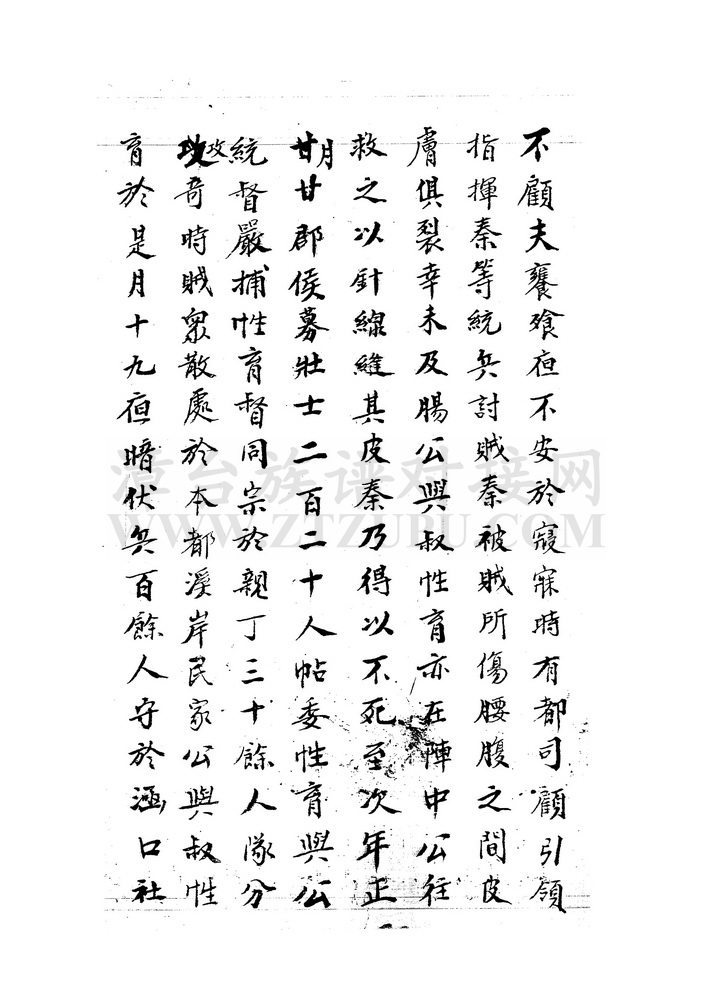 不顧夫饔飱夜不安於寢寐時有都司顧引領
指揮秦等統兵討賊秦被賊所傷腰腹之間皮
膚俱裂幸未及腸公與叔性育亦在陣中公往
救之以針線縫其皮秦乃得以不死至次年正
月廿廿郡侯募壯士二百二十人帖委性育與公
統督嚴捕性育督同宗於親丁三十餘人隊分
攻奇時賊衆散處於本都溪岸民家公與叔性
育於是月十九夜暗伏兵百餘人守於涵口社
漳台族谱对接网
WWW.ZTZUPU.COM